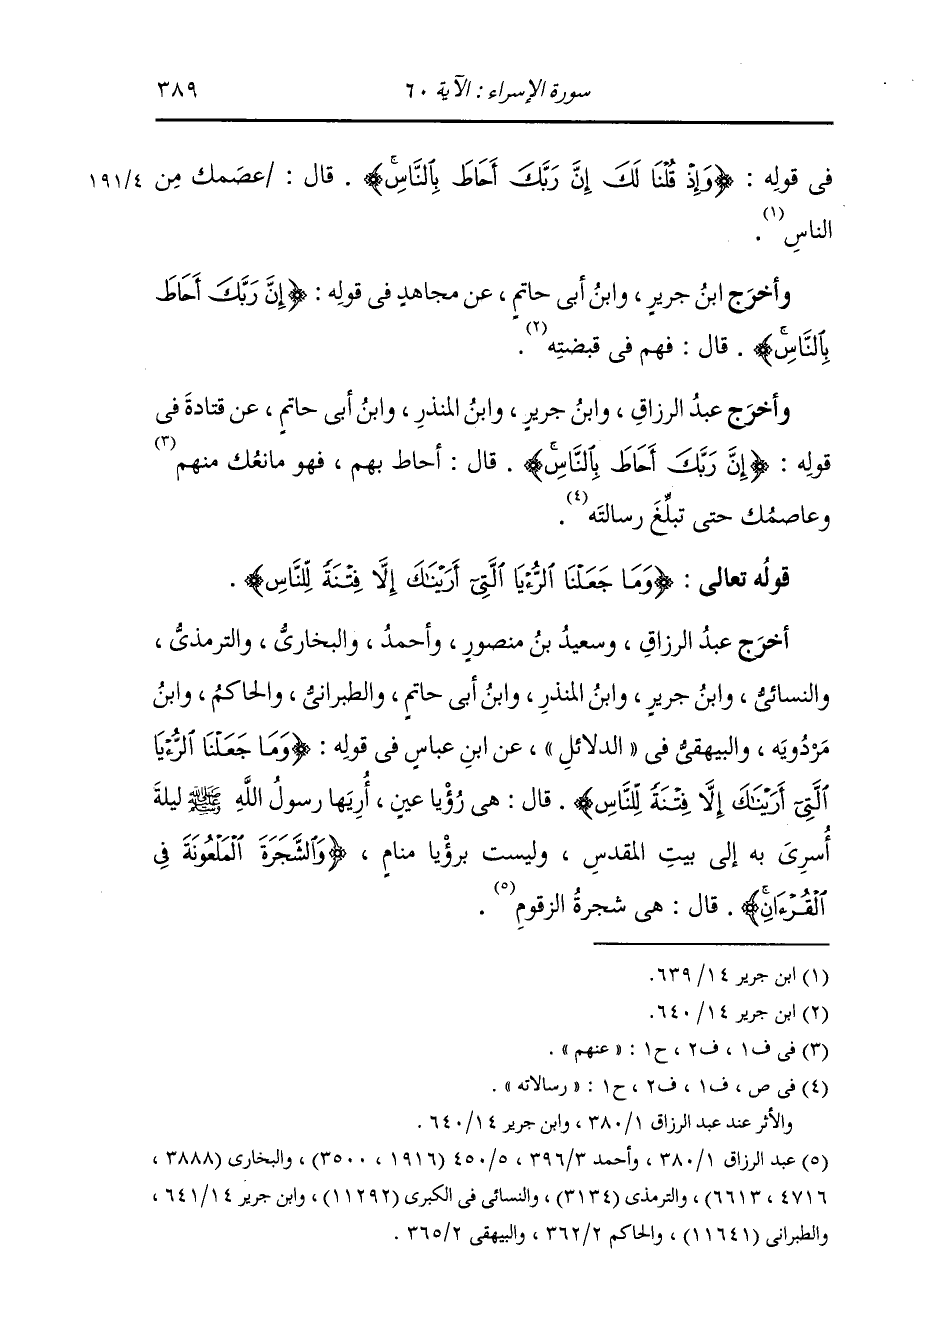 سورة الإسراء : الآية ٦٠ ٣٨٩
فى قولِه : ﴿وَإِذْ قُلْنَا لَكَ إِنَّ رَبَّكَ أَحَاطَ بِٱلنَّاسِۚ﴾ . قال : /عصَمك مِن ١٩١/٤
الناسِ(١).
وأخرَج ابنُ جريرٍ ، وابنُ أبى حاتمٍ ، عن مجاهدٍ فى قولِه : ﴿إِنَّ رَبَّكَ أَحَاطَ
بِٱلنَّاسِۚ﴾ . قال : فهم فى قبضتِه(٢).
وأخرَج عبدُ الرزاقِ ، وابنُ جريرٍ ، وابنُ المنذرِ ، وابنُ أبى حاتمٍ ، عن قتادةَ فى
قولِه : ﴿إِنَّ رَبَّكَ أَحَاطَ بِٱلنَّاسِۚ﴾ . قال : أحاط بهم ، فهو مانعُك منهم(٣)
وعاصمُك حتى تبلِّغَ رسالتَه(٤).
قولُه تعالى : ﴿وَمَا جَعَلْنَا ٱلرُّءْيَا ٱلَّتِىٓ أَرَيْنَٰكَ إِلَّا فِتْنَةً لِّلنَّاسِ﴾ .
أخرَج عبدُ الرزاقِ ، وسعيدُ بنُ منصورٍ ، وأحمدُ ، والبخارىُّ ، والترمذىُّ ،
والنسائىُّ ، وابنُ جريرٍ ، وابنُ المنذرِ ، وابنُ أبى حاتمٍ ، والطبرانىُّ ، والحاكمُ ، وابنُ
مَرْدُويَه ، والبيهقىُّ فى « الدلائلِ » ، عن ابنِ عباسٍ فى قولِه : ﴿وَمَا جَعَلْنَا ٱلرُّءْيَا
ٱلَّتِىٓ أَرَيْنَٰكَ إِلَّا فِتْنَةً لِّلنَّاسِ﴾ . قال : هى رُؤْيا عينٍ ، أُرِيَها رسولُ اللَّهِ ﷺ ليلةَ
أُسرِىَ به إلى بيتِ المقدسِ ، وليست برؤْيا منامٍ ، ﴿وَٱلشَّجَرَةَ ٱلْمَلْعُونَةَ فِى
ٱلْقُرْءَانِۚ﴾ . قال : هى شجرةُ الزقومِ(٥) .
(١) ابن جرير ١٤/ ٦٣٩.
(٢) ابن جرير ١٤/ ٦٤٠.
(٣) فى ف١ ، ف٢ ، ح١ : « عنهم » .
(٤) فى ص ، ف١ ، ف٢ ، ح١ : « رسالاته » .
والأثر عند عبد الرزاق ٣٨٠/١ ، وابن جرير ٦٤٠/١٤ .
(٥) عبد الرزاق ٣٨٠/١ ، وأحمد ٣٩٦/٣ ، ٤٥٠/٥ (١٩١٦ ، ٣٥٠٠) ، والبخارى (٣٨٨٨ ،
٤٧١٦ ، ٦٦١٣) ، والترمذى (٣١٣٤) ، والنسائى فى الكبرى (١١٢٩٢) ، وابن جرير ٦٤١/١٤ ،
والطبرانى (١١٦٤١) ، والحاكم ٣٦٢/٢ ، والبيهقى ٣٦٥/٢ .